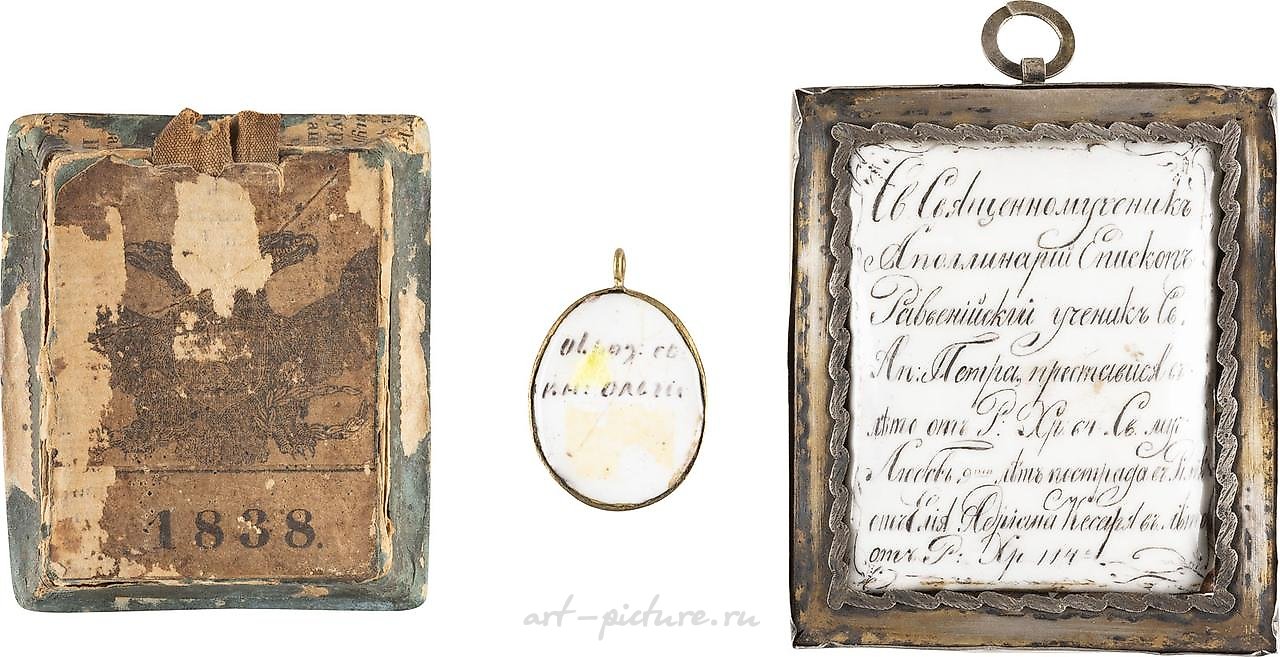 1838.
КН: ОЛЬГИ:
Св Священномученикъ
Аполлинарій Епископъ
Равенійскій ученикъ Св.
Ап: Петра, преставися въ
лѣто отъ Р: Хр 64. Св. муч:
Любовь, 9ти лѣтъ пострада въ
отъ Адріана Кесаря въ лѣто
отъ Р: Хр 114е
art-picture.ru